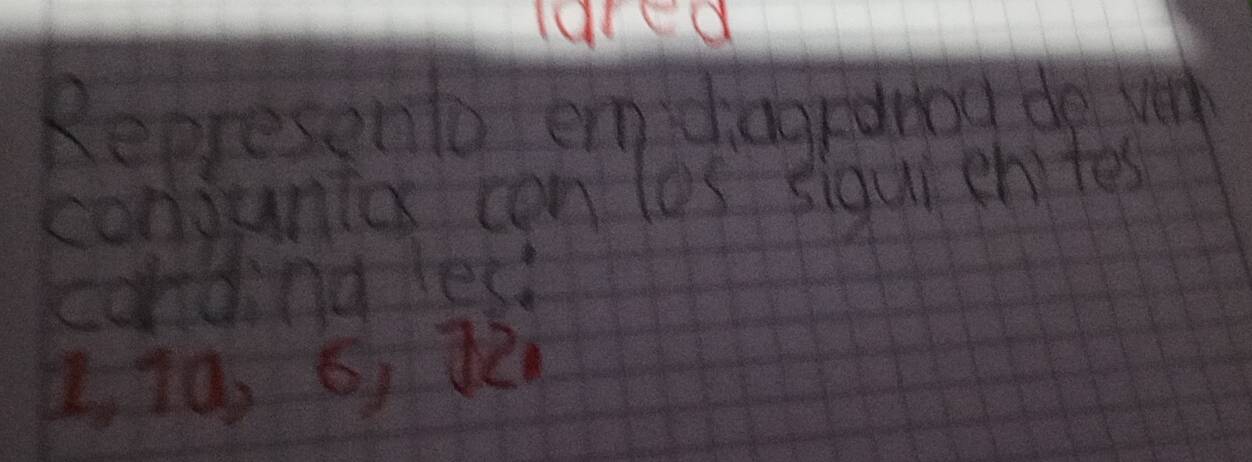 tared
Represento em diagrama de ven
conjuntos con los siguientes
cardinales:
1, 10, 6, 12.